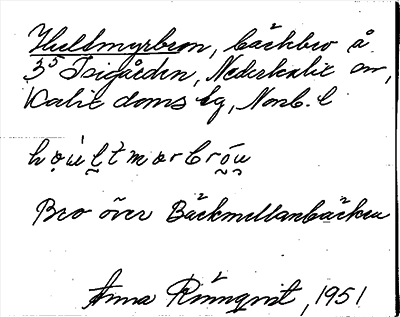 Hultmyrbron, bäckbro å
3⁵ Isigården, Nederkalix sn,
Kalix doms lg, Norrb. l
Bro över Bäckmellanbäcken
Anna Rönnqvist, 1951